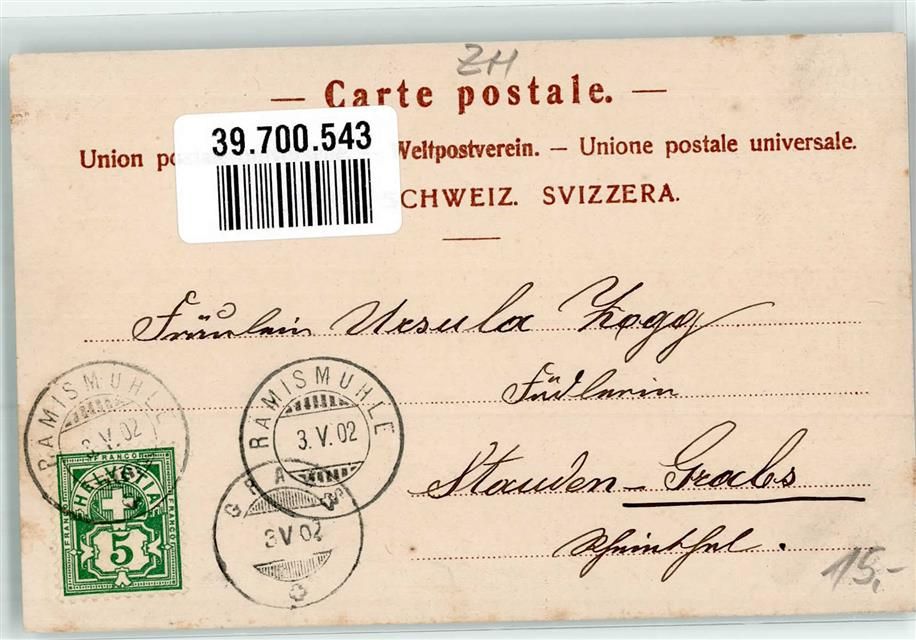 ZH
— Carte postale. —
39.700.543
Union Weltpostverein. — Unione postale universale.
SCHWEIZ. SVIZZERA.
Fräulein Ursula Zogg
Stauden-Grabs
Rheinthal.
RAMISMUHLE
3.V.02
RAMISMUHLE
3.V.02
GRABS
3 V 02
FRANCO
HELVETIA
FRANCO
FRANCO
5
15.-